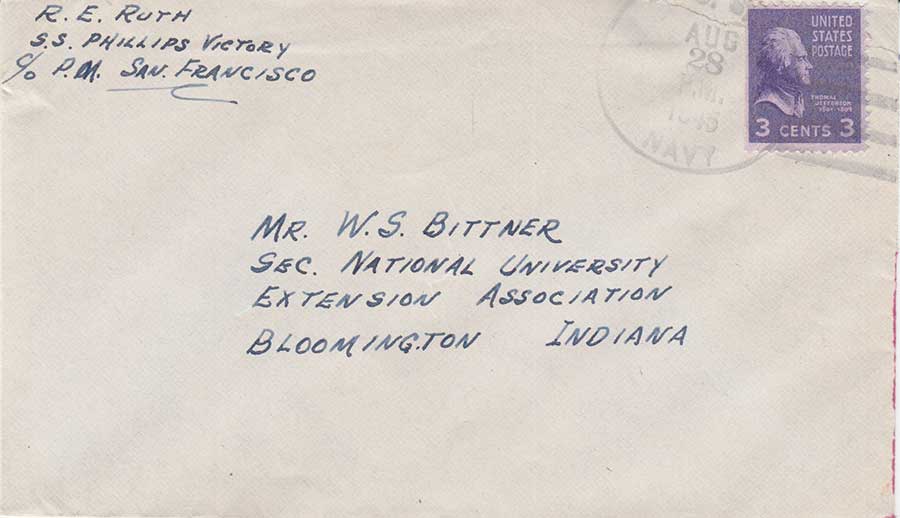 R. E. RUTH
S.S. PHILLIPS VICTORY
c/o P.M. SAN. FRANCISCO
AUG
28
NAVY
UNITED
STATES
POSTAGE
THOMAS
JEFFERSON
3 CENTS 3
MR. W. S. BITTNER
SEC. NATIONAL UNIVERSITY
EXTENSION ASSOCIATION
BLOOMINGTON INDIANA